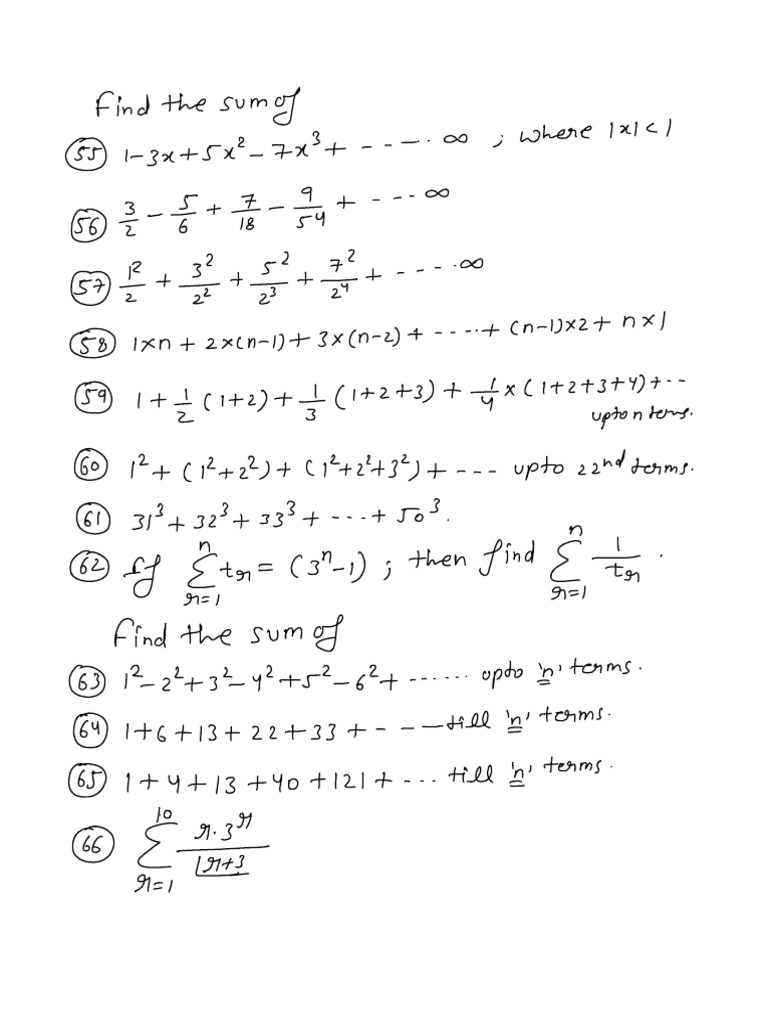 Find the sum of
55 1-3x+5x²-7x³+ - - - . ∞ ; where |x|<1
56 3/2 - 5/6 + 7/18 - 9/54 + - - - . ∞
57 1²/2 + 3²/2² + 5²/2³ + 7²/2⁴ + - - - . ∞
58 1×n + 2×(n-1)+ 3×(n-2)+ - - - - + (n-1)×2 + n×1
59 1+ 1/2 (1+2)+ 1/3 (1+2+3) + 1/4 × (1+2+3+4)+ - -
upto n terms.
60 1² + (1²+2²)+ (1²+2²+3²)+ - - - upto 22nd terms.
61 31³ + 32³ + 33³ + - - - + 50³.
62 If ∑_{r=1}^{n} t_r = (3ⁿ-1) ; then find ∑_{r=1}^{n} 1/t_r .
Find the sum of
63 1²-2²+3²-4²+5²-6²+ ...... upto 'n' terms.
64 1+6+13+22+33+ - - - till 'n' terms.
65 1+4+13+40+121+ - - - till 'n' terms.
66 ∑_{r=1}^{10} r.3^r / |r+3